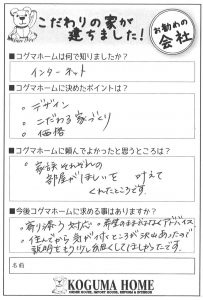 こだわりの家が
建ちました!
お勧めの
会社
■コグマホームは何で知りましたか?
インターネット
■コグマホームに決めたポイントは?
・デザイン
・こだわる家づくり
・価格
■コグマホームに頼んでよかったと思うところは?
・家族それぞれの
部屋がほしいを 叶えて
くれたところです。
■今後コグマホームに求める事はありますか?
・寄り添う対応 ・希望のままだけでなくアドバイス
・住んでから気が付くところが沢山あったので
説明をもう少し細かくしてほしかったです。
名前
KOGUMA HOME